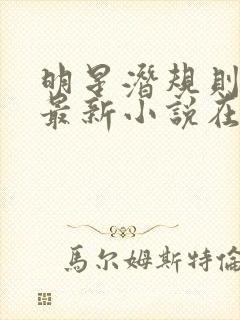 明星潛規則
最新小說在
馬尔姆斯特倫